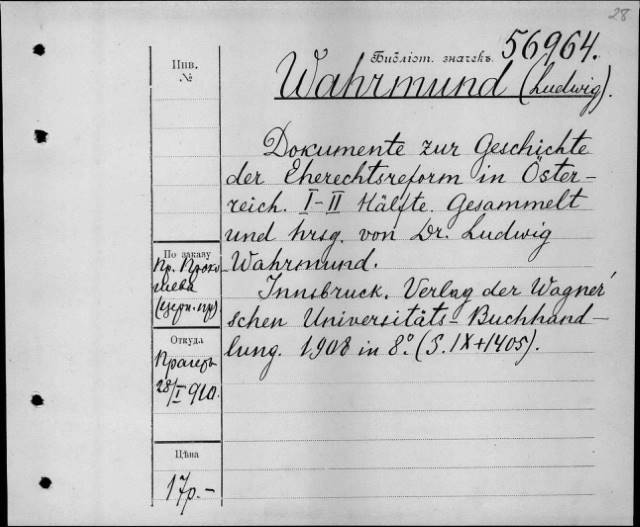 28
Библіот. значекъ 56964.
Инв.
№
Wahrmund (Ludwig).
Dokumente zur Geschichte
der Eherechtsreform in Öster-
reich. I-II Hälfte. Gesammelt
und hrsg. von Dr. Ludwig
Wahrmund.
Innsbruck. Verlag der Wagner'
schen Universitäts-Buchhand-
lung. 1908 in 8° (S. IX+1405).
По заказу
Пр.
Откуда
28/I 910.
Цѣна
17р.-